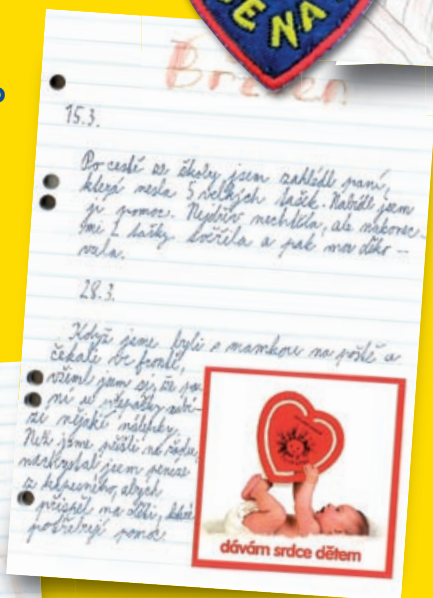 ENA
Březen
15.3.
Po cestě ze školy jsem zahlédl paní,
která nesla 5 velkých tašek. Nabídl jsem
jí pomoc. Nejdřív nechtěla, ale nakonec
mi 2 tašky svěřila a pak moc děko-
vala.
28.3.
Když jsme byli s mamkou na poště a
čekali ve frontě,
všiml jsem si, že pa-
ní u přepážky nabí-
zí nějaké nálepky.
Než jsme přišli na řadu,
nachystal jsem peníze
z kapesného, abych
přispěl na děti, které
potřebují pomoc.
dávám srdce dětem